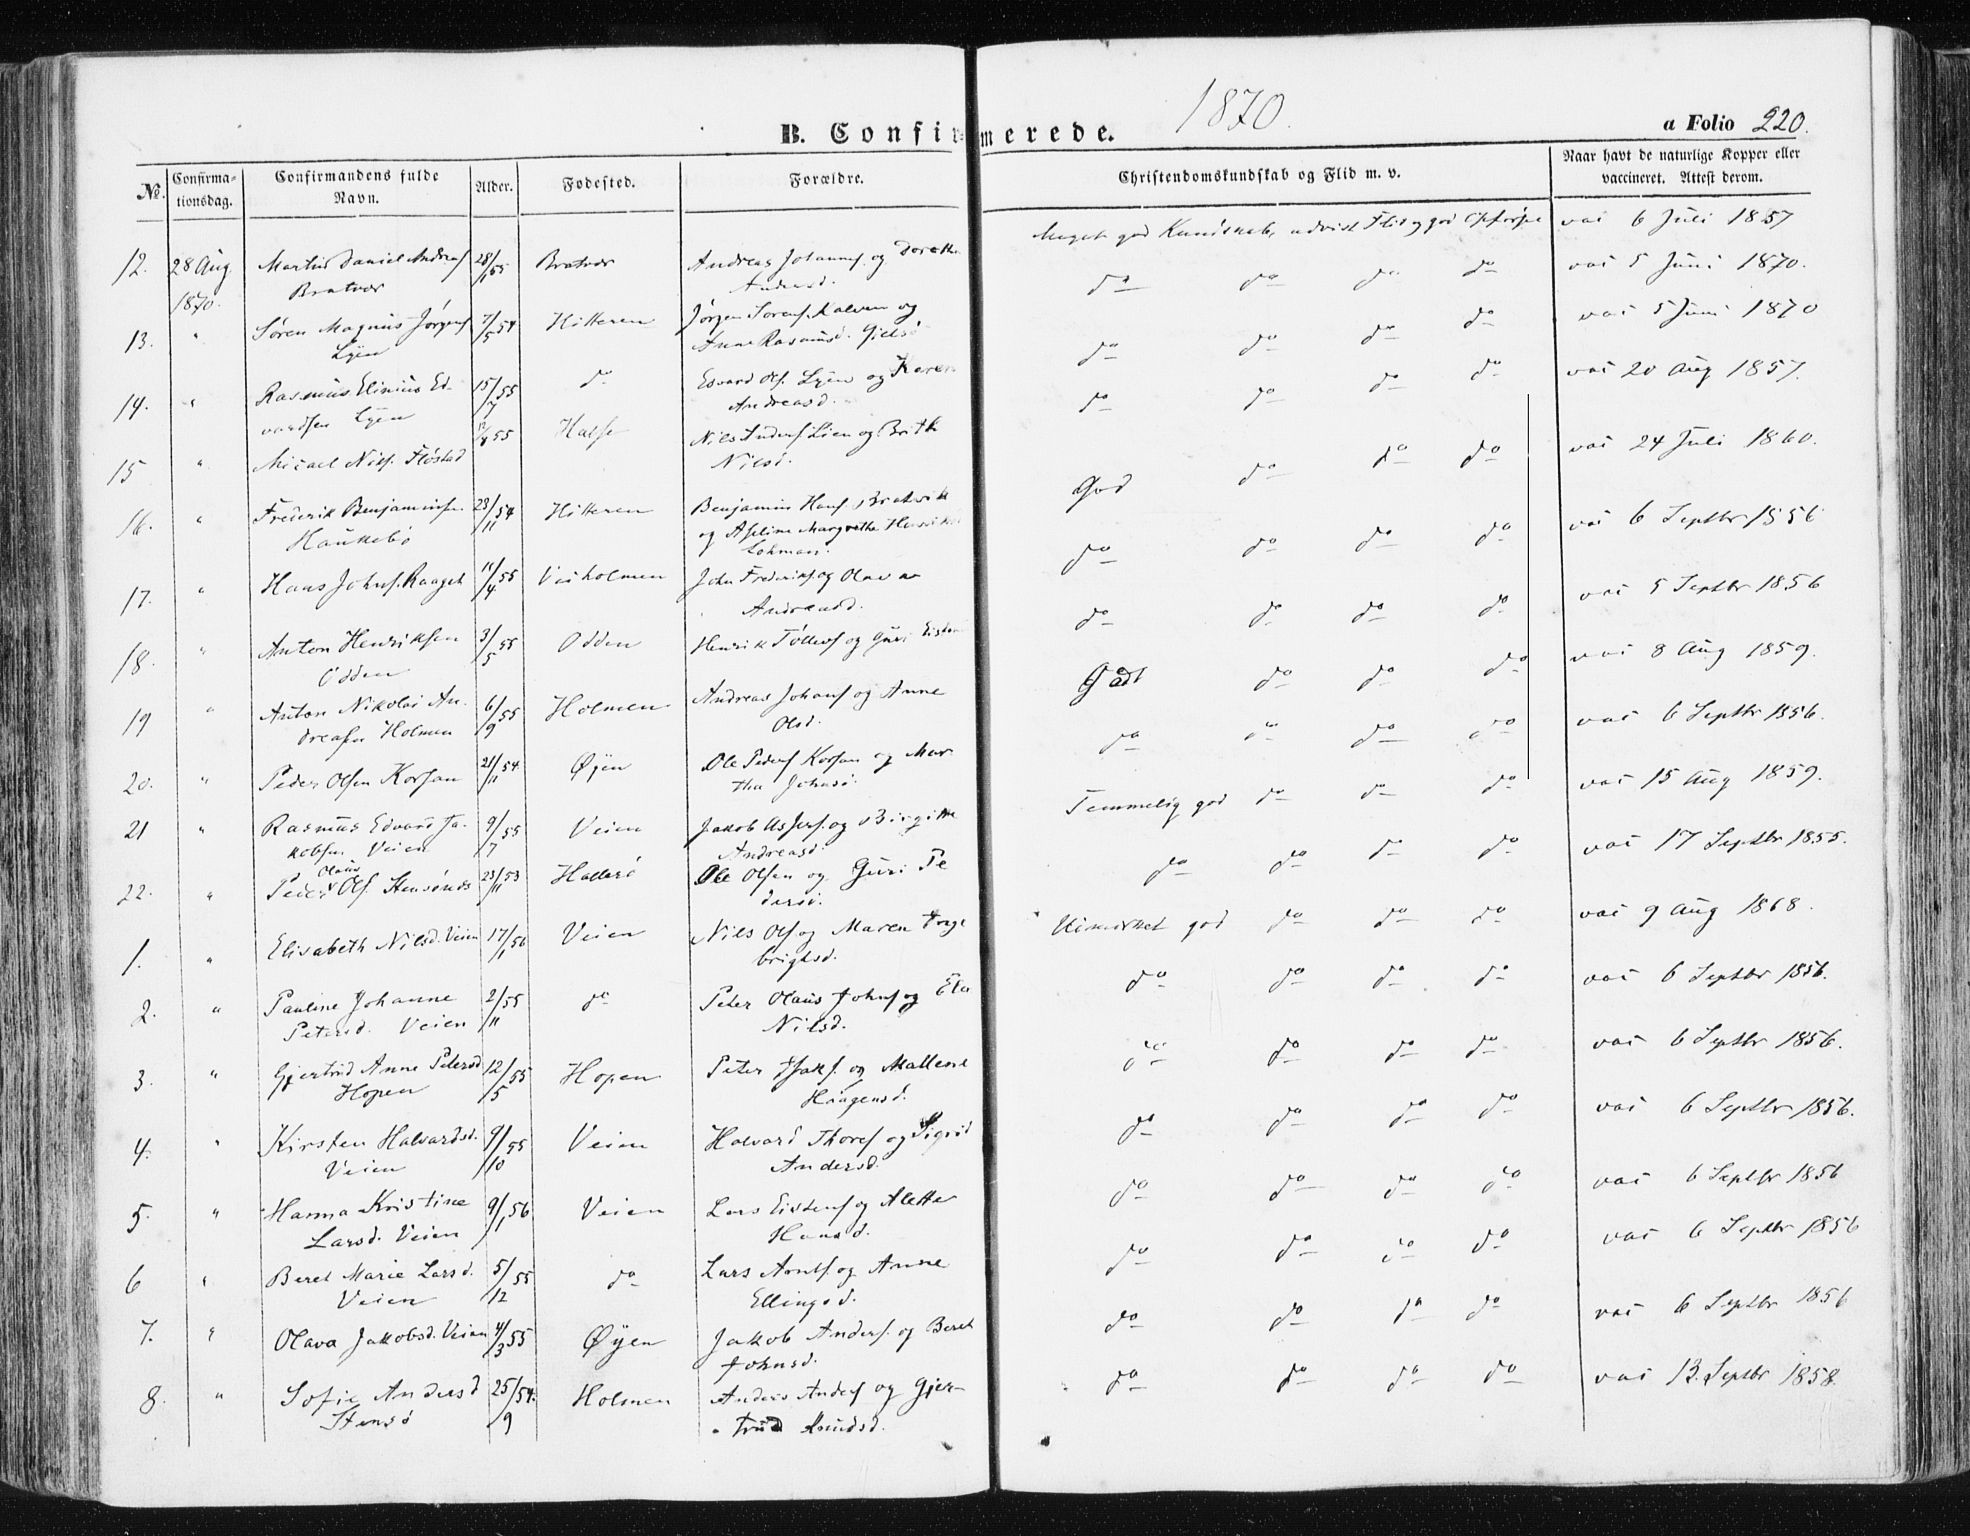 B. Confirmerede. 1870. a Folio 220.
№. Confirmationsdag. Confirmandens fulde Navn. Alder. Fødested. Forældre. Christendomskundskab og Flid m. v. Naar havt de naturlige Kopper eller vaccineret. Attest derom.
12. 28 Aug 1870. Martin Daniel Andreas 28/1 55 Bratvær Andreas Johannes. og Dorethe Meget god Kundskab, udvist Flid og god Opførsel vac 6 Juli 1857
Bratvær Andersd.
13. " Søren Magnus Jørgens 7/5 54 Hitteren Jørgen Sørens. Kalven og do do do do vac 5 Juni 1870.
Lyen Anne Rasmusd.
14. " Rasmus Elinius Ed- 15/7 55 do Edvard Ols. Lyen og Karen do do do do vac 5 Juni 1870
vardsen Lyen Andreasd.
15 " Micael Nils. Flostad 12/8 55 Halse Nils Anders Lien og Brith do do do do vac 20 Aug 1857.
Nilsd.
16. " Frederik Benjaminsen 23/11 54 Hitteren Benjamin Hans. Bratvik God do do do vac 24 Juli 1860.
Haukebø og Margrethe Henriks
Lohman.
17. " Hans Johns. Raaget 11/4 55 Veiholmen John Frederiks. og Olava do do do do vac 6 Septbr 1856
Andreasd.
18. " Anton Henriksen 3/5 55 Odden Henrik Tollevs og Guri do do do do vac 5 Septbr 1856
Odden
19 " Anton Nikolai An- 6/9 55 Holmen Andreas Johans og Anne Godt do do do vac 8 Aug 1859.
dreasen Holmen Olsd.
20. " Peder Olsen Korsan 21/11 54 Øyen Ole Peders Korsan og Mar- do do do do vac 6 Septbr 1856.
tha Johnsd.
21 " Rasmus Edvard Ja- 9/7 55 Veien Jakob Assers. og Birgitte Temmelig god do do do vac 15 Aug 1859.
kobsen Veien Andreasd.
22. " Peder Olaus Ols. Stensønes 23/11 53 Hallerø Ole Olsen og Guri Pe do do do do vac 17 Septbr 1855.
dersd.
1. " Elisabeth Nilsd. Veien 17/1 56 Veien Nils Ols og Maren Inge Udmærket god do do do vac 9 Aug 1868.
brigtsd.
2. " Pauline Johanne 2/11 55 do Peter Olaus Johns og Ele do do do do vac 6 Septbr 1856.
Petersd. Veien Nilsd.
3. " Gjertrud Anne Petersd 12/5 55 Hopen Peter Isaks. og Mallene do do do do vac 6 Septbr 1856.
Hopen Haagensd.
4. " Kirsten Halvardsd. 9/10 55 Veien Halvard Thores og Sigrid do do do do vac 6 Septbr 1856.
Veien Andersd.
5. " Hanna Kristine 9/1 56 Veien Lars Eistens og Alette do do do do vac 6 Septbr 1856
Larsd. Veien Hansd.
6 " Beret Marie Larsd. 5/12 55 do Lars Arnts. og Anne do do do do vac 6 Septbr 1856
Veien Ellingsd.
7. " Olava Jakobsd. Veien 4/3 55 Øyen Jakob Anders. og Beret do do do do vac 6 Septbr 1856
Johnsd.
8. " Sofie Andersd 25/9 54. Holmen Anders Anders og Gjer- do do do do vac 13. Septbr 1858.
Stensø trud Knudsd.